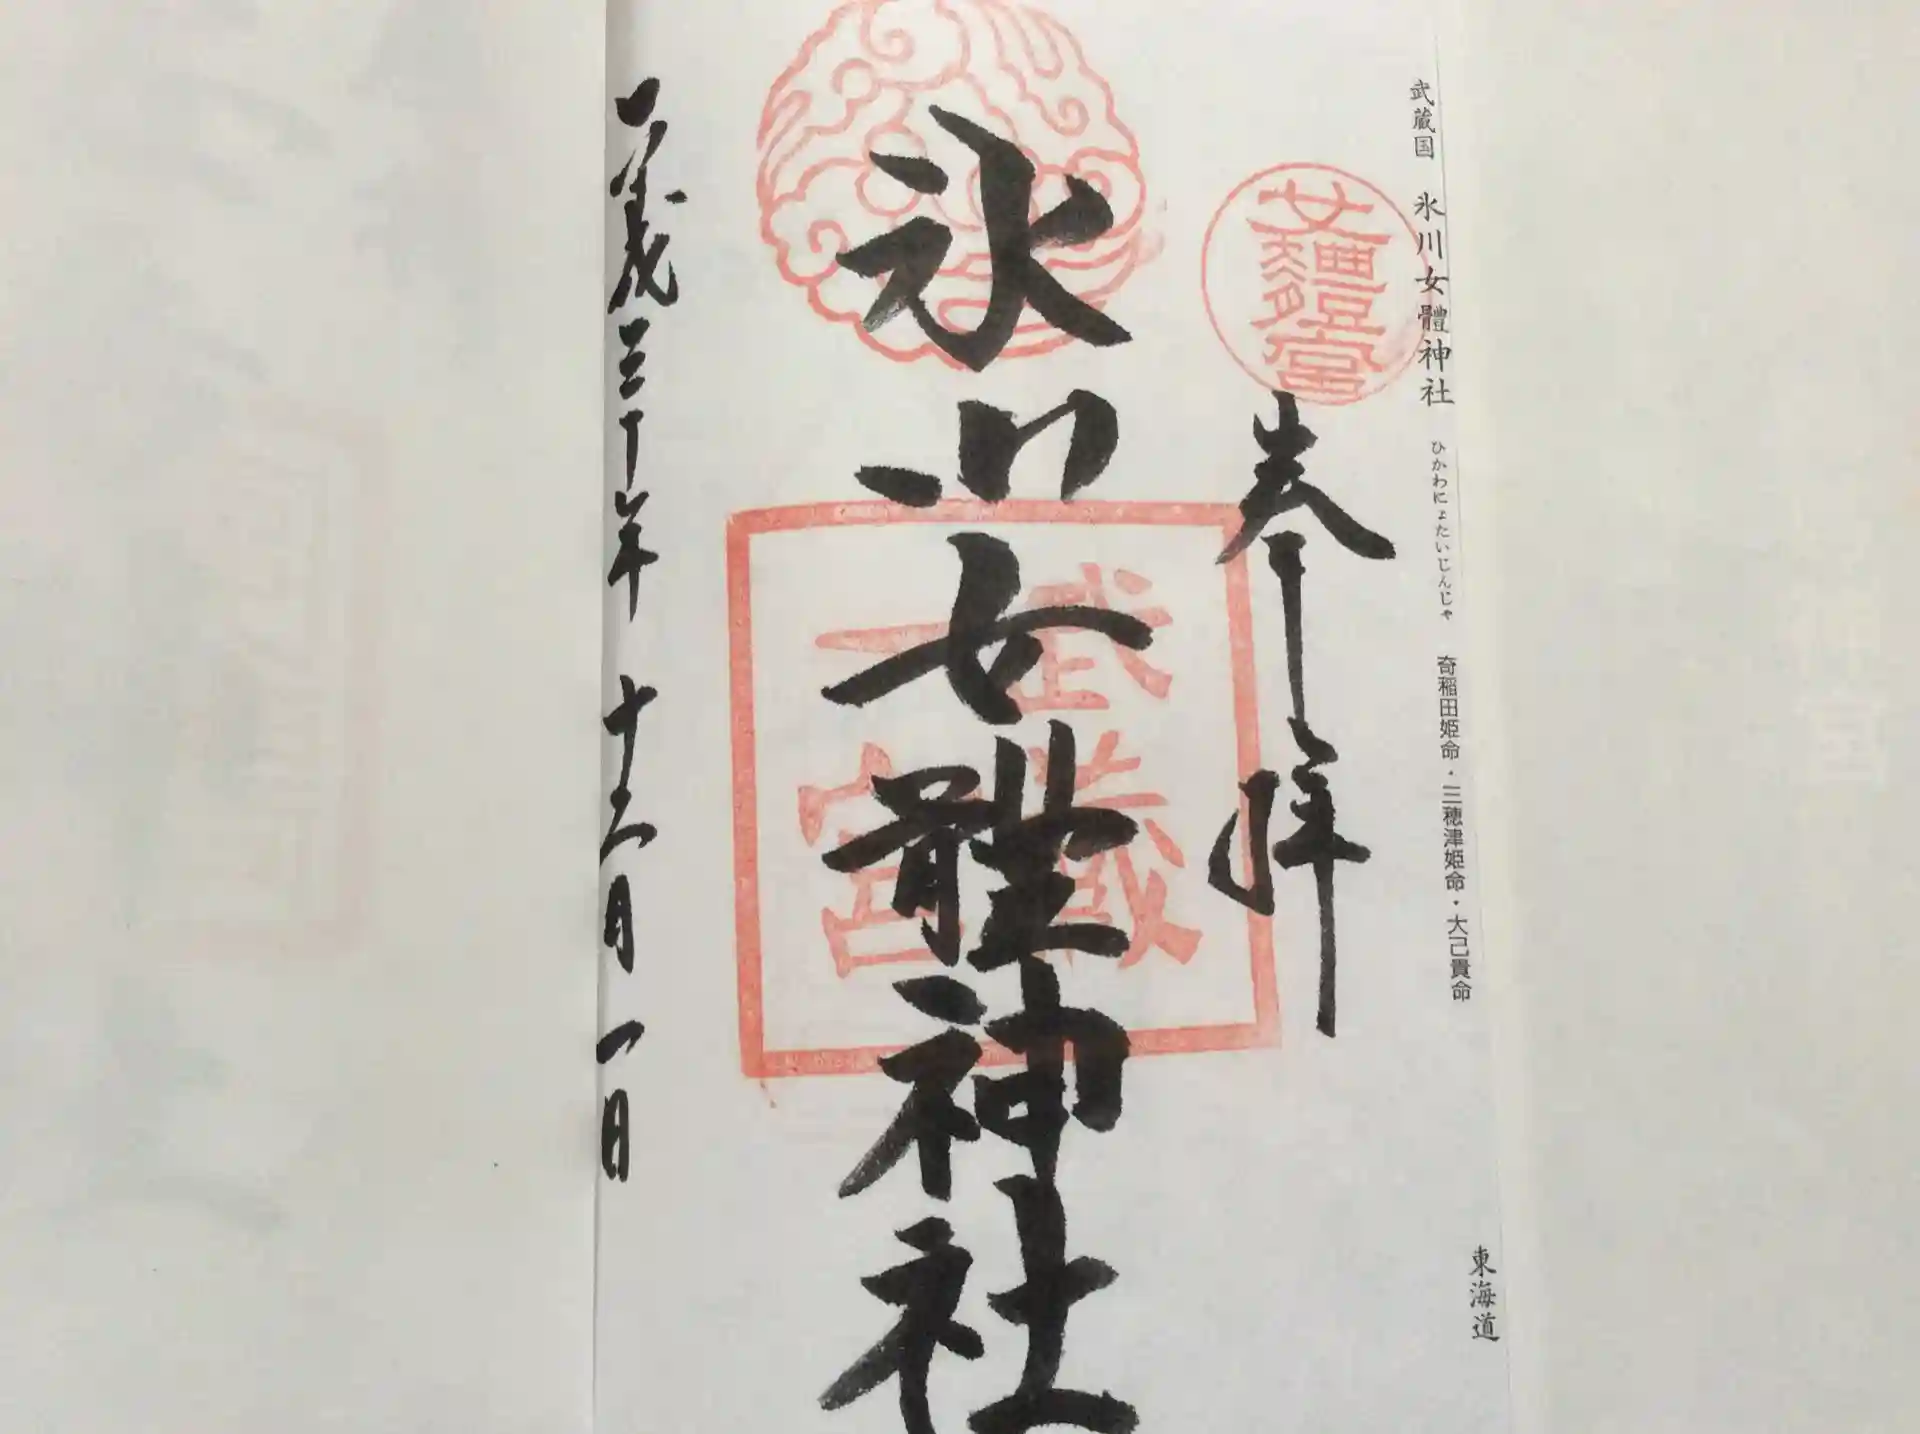 武蔵国 氷川女體神社 ひかわにょたいじんじゃ 奇稲田姫命・三穂津姫命・大己貴命 東海道
女體宮
奉拝
氷川女體神社
武蔵
一宮
平成三十年 十二月 一日